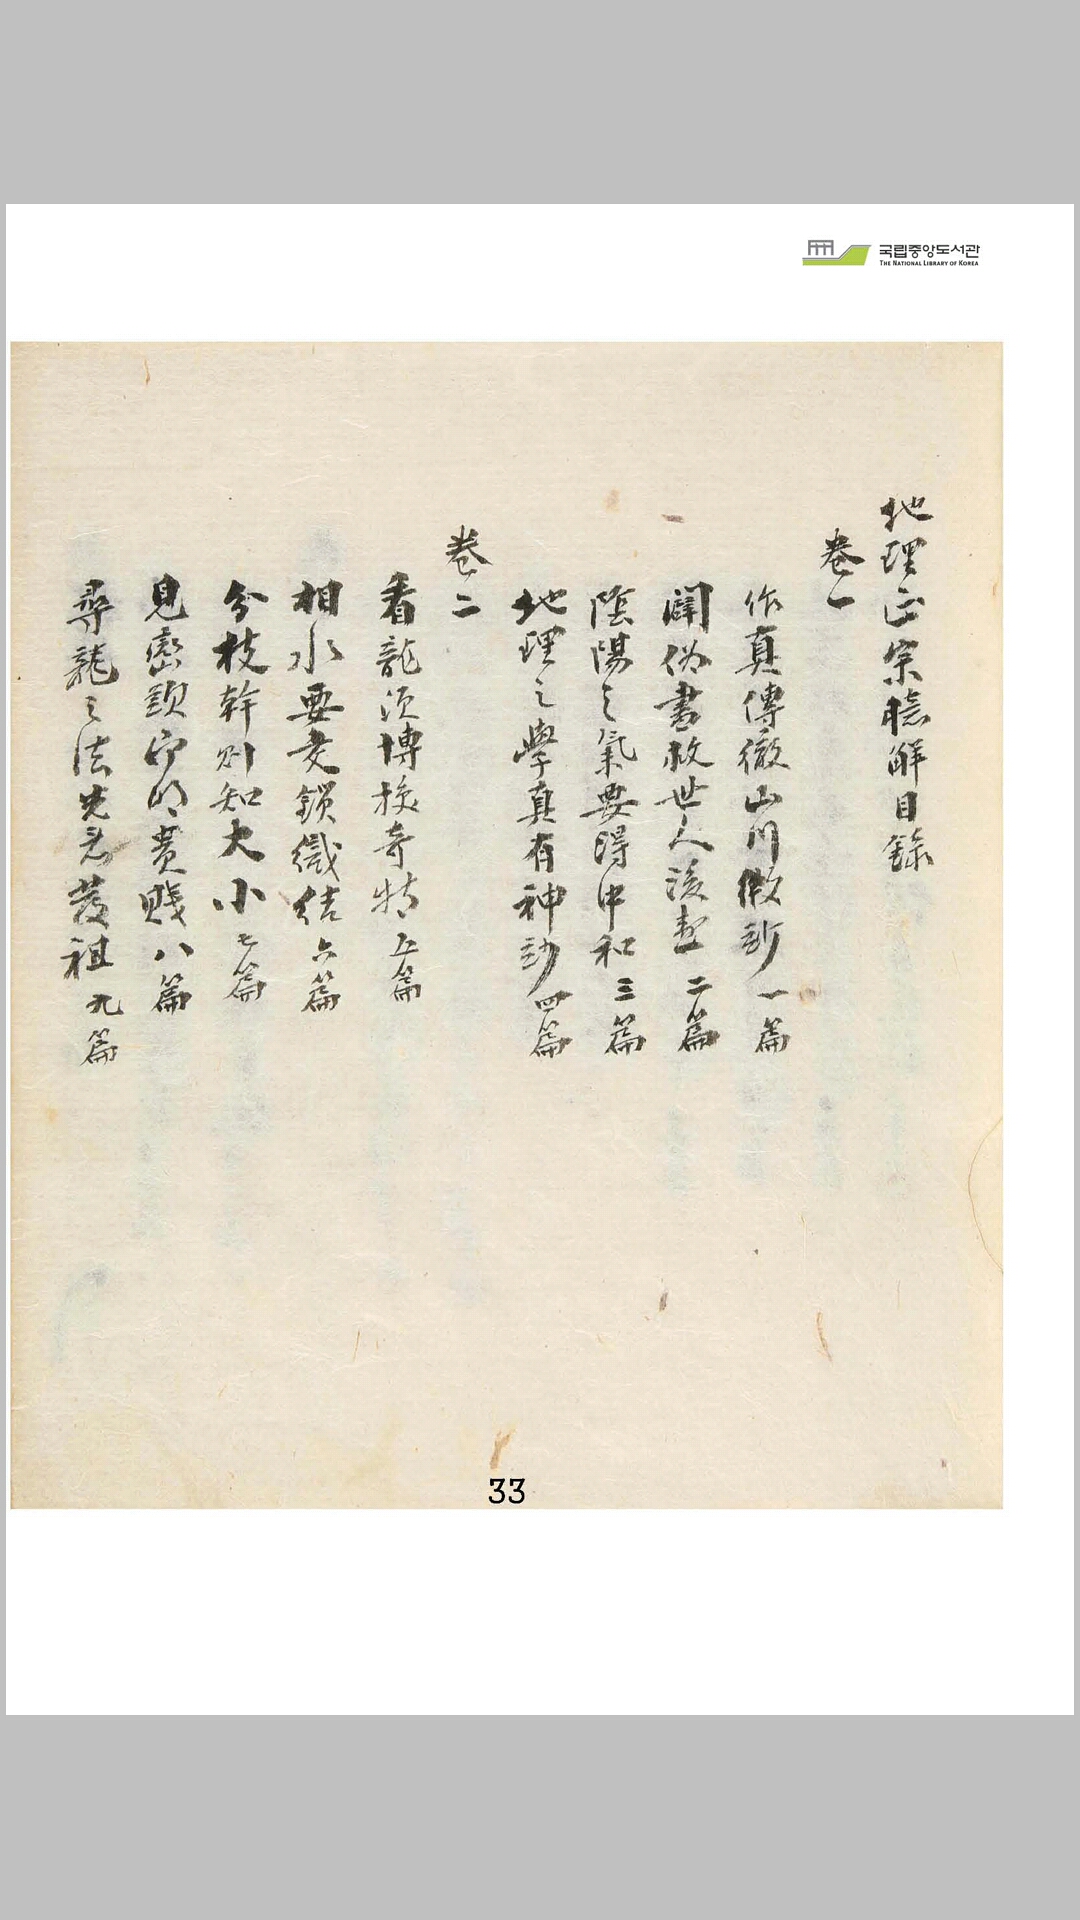 국립중앙도서관
THE NATIONAL LIBRARY OF KOREA
地理正宗臆解目錄
卷一
作真傳徹山川微玅 一篇
闢僞書救世人後 二篇
陰陽之氣要得中和 三篇
地理之學真有神玅 四篇
卷二
看龍須博換奇特 五篇
相水要交鎖織結 六篇
分枝幹則知大小 七篇
見巒頭即明貴賤 八篇
尋龍之法先看發祖 九篇
33